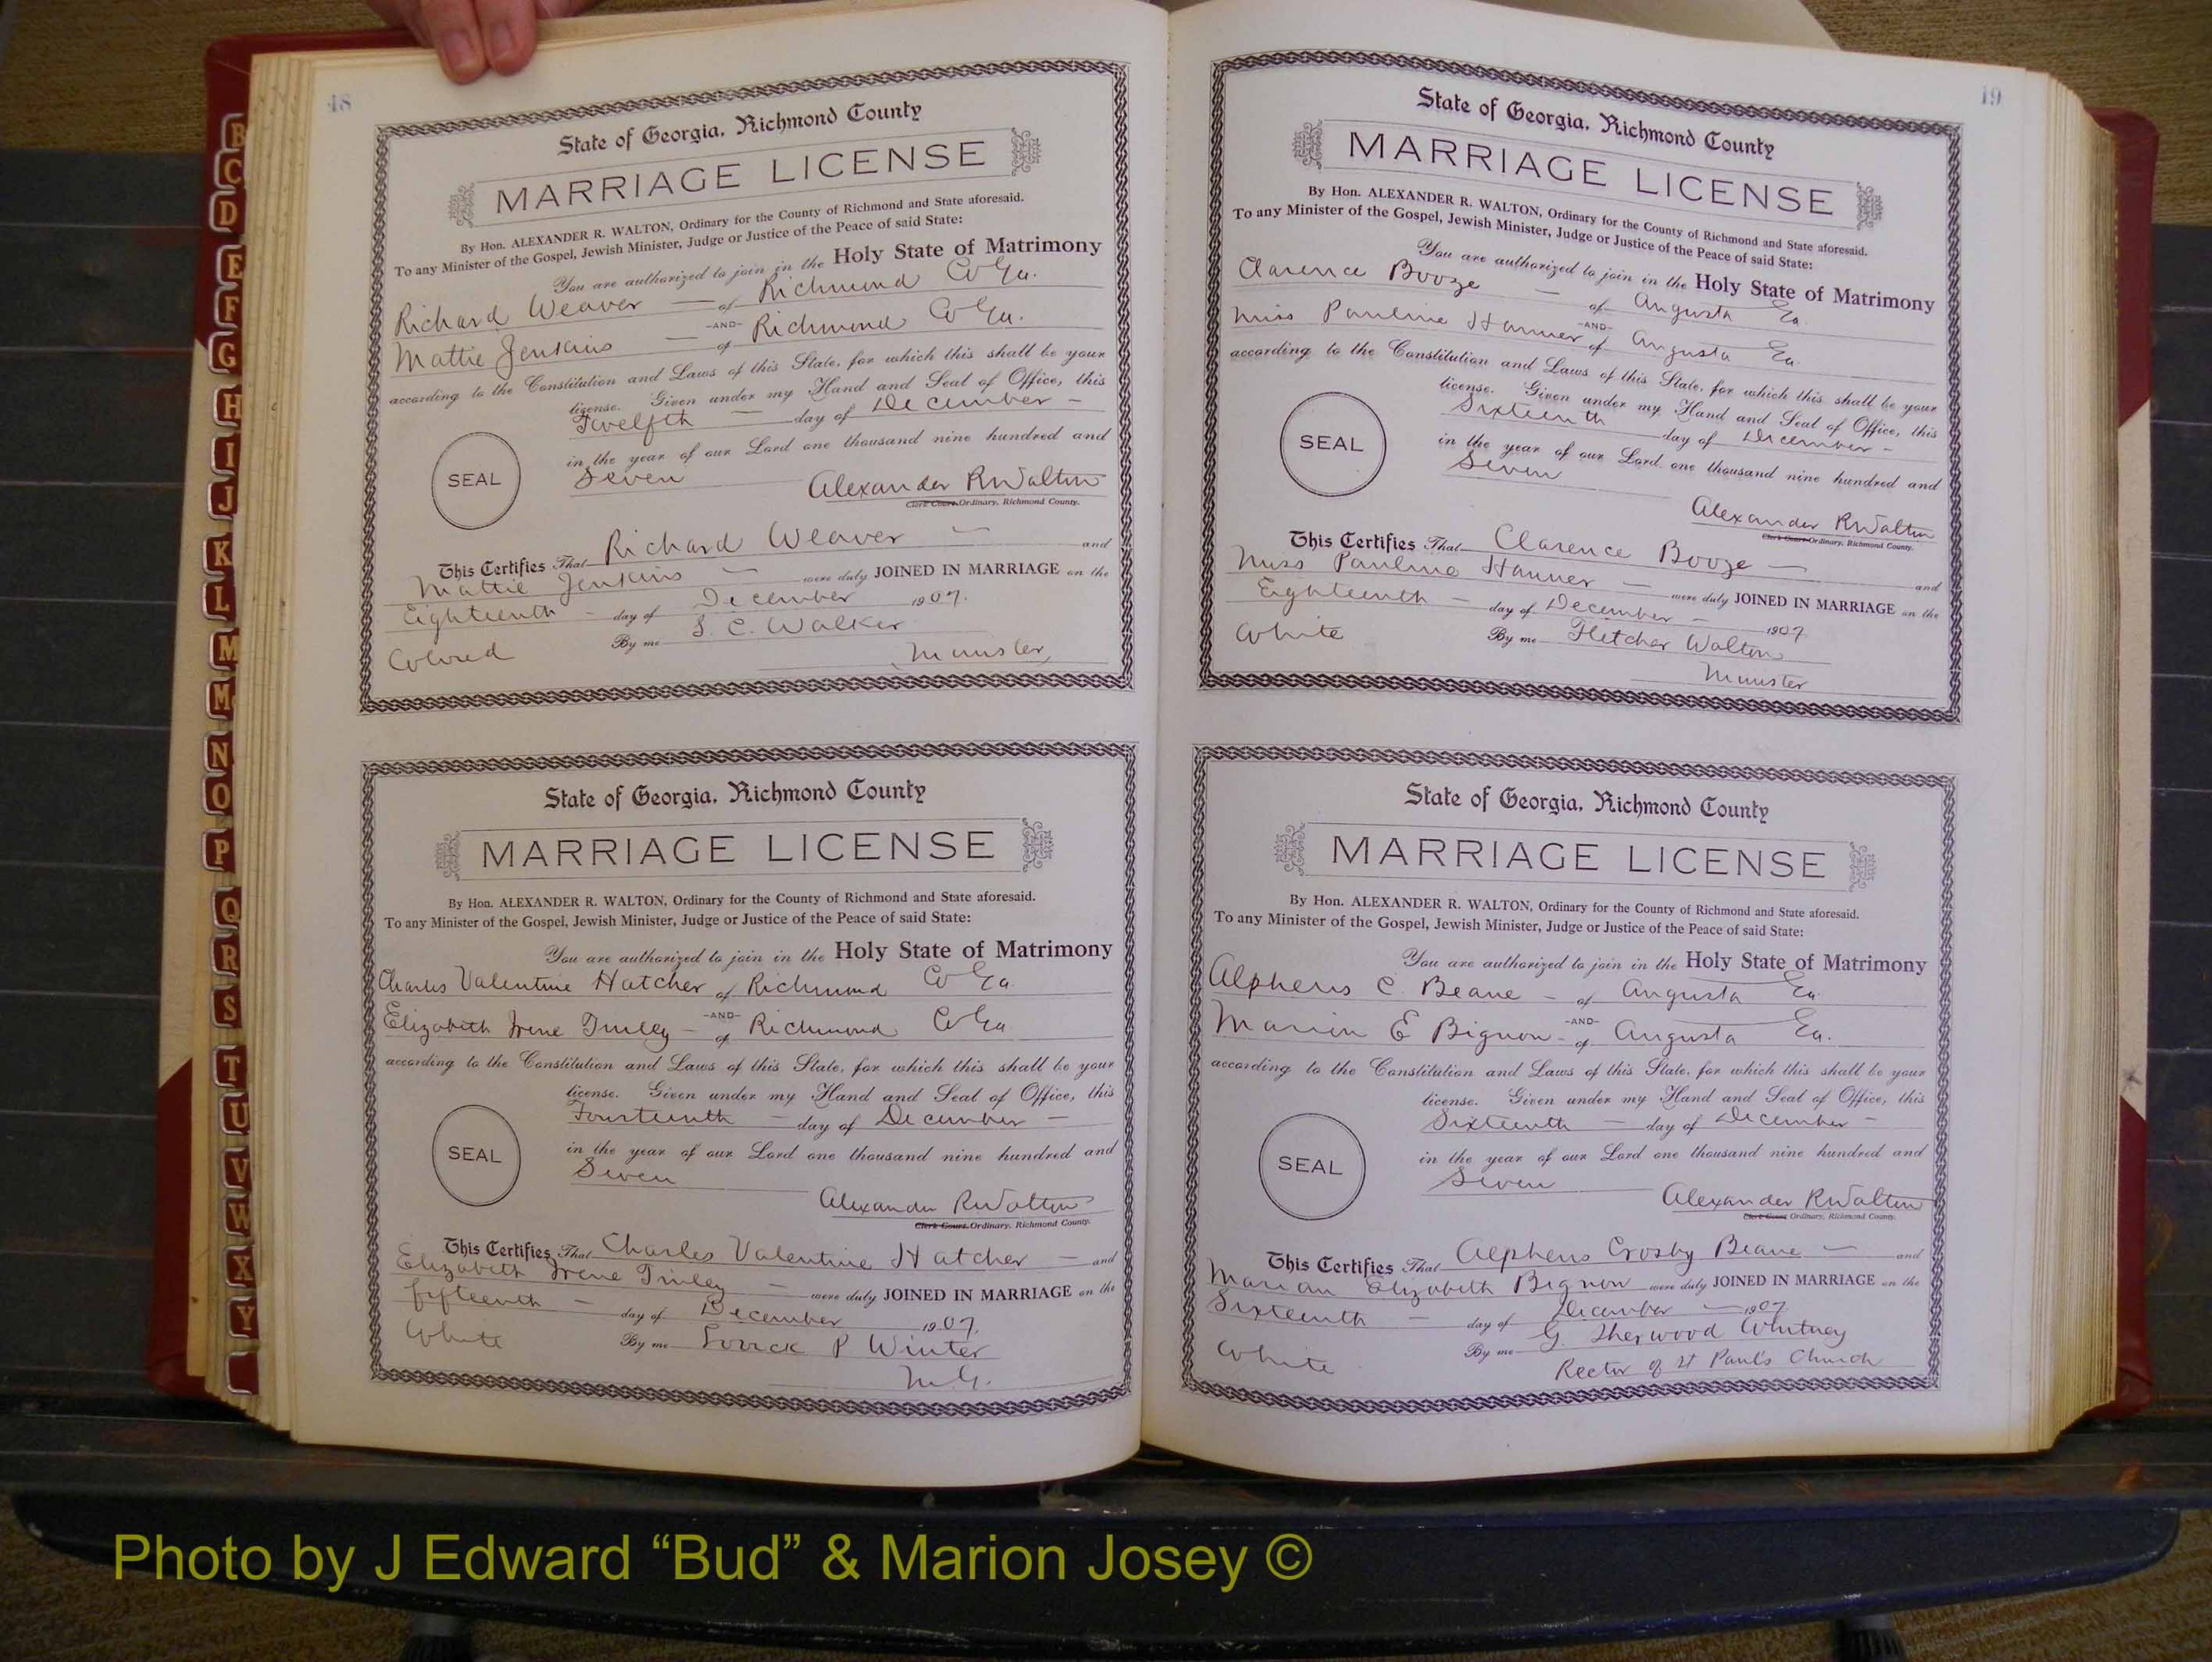 48
State of Georgia, Richmond County
MARRIAGE LICENSE
By Hon. ALEXANDER R. WALTON, Ordinary for the County of Richmond and State aforesaid.
To any Minister of the Gospel, Jewish Minister, Judge or Justice of the Peace of said State:
You are authorized to join in the Holy State of Matrimony
Richard Weaver — of Richmond Co Ga.
-AND-
Mattie Jenkins — of Richmond Co Ga.
according to the Constitution and Laws of this State, for which this shall be your
license. Given under my Hand and Seal of Office, this
Twelfth — day of December -
in the year of our Lord one thousand nine hundred and
Seven
SEAL
Alexander R Walton
Clerk Court Ordinary, Richmond County.
This Certifies That Richard Weaver — and
Mattie Jenkins — were duly JOINED IN MARRIAGE on the
Eighteenth - day of December 1907.
Colored By me S. C. Walker
Minister,
State of Georgia, Richmond County
MARRIAGE LICENSE
By Hon. ALEXANDER R. WALTON, Ordinary for the County of Richmond and State aforesaid.
To any Minister of the Gospel, Jewish Minister, Judge or Justice of the Peace of said State:
You are authorized to join in the Holy State of Matrimony
Charles Valentine Hatcher of Richmond Co Ga.
-AND-
Elizabeth Irene Tinley - of Richmond Co Ga
according to the Constitution and Laws of this State, for which this shall be your
license. Given under my Hand and Seal of Office, this
Fourteenth — day of December —
in the year of our Lord one thousand nine hundred and
Seven
SEAL
Alexander R Walton
Clerk Court Ordinary, Richmond County.
This Certifies That Charles Valentine Hatcher — and
Elizabeth Irene Tinley — were duly JOINED IN MARRIAGE on the
fifteenth — day of December 1907.
White By me P Winter
M.G.
19
State of Georgia, Richmond County
MARRIAGE LICENSE
By Hon. ALEXANDER R. WALTON, Ordinary for the County of Richmond and State aforesaid.
To any Minister of the Gospel, Jewish Minister, Judge or Justice of the Peace of said State:
You are authorized to join in the Holy State of Matrimony
Clarence Booze — of Augusta Ga.
-AND-
Miss Pauline Hanner of Augusta Ga.
according to the Constitution and Laws of this State, for which this shall be your
license. Given under my Hand and Seal of Office, this
Sixteenth day of December -
in the year of our Lord one thousand nine hundred and
Seven
SEAL
Alexander R Walton
Clerk Court Ordinary, Richmond County.
This Certifies That Clarence Booze — and
Miss Pauline Hanner — were duly JOINED IN MARRIAGE on the
Eighteenth — day of December — 1907
White By me Fletcher Walton
Minister
State of Georgia, Richmond County
MARRIAGE LICENSE
By Hon. ALEXANDER R. WALTON, Ordinary for the County of Richmond and State aforesaid.
To any Minister of the Gospel, Jewish Minister, Judge or Justice of the Peace of said State:
You are authorized to join in the Holy State of Matrimony
Alpheus C. Beane - of Augusta Ga
-AND-
Marion E Bignon - of Augusta Ga.
according to the Constitution and Laws of this State, for which this shall be your
license. Given under my Hand and Seal of Office, this
Sixteenth — day of December -
in the year of our Lord one thousand nine hundred and
Seven
SEAL
Alexander R Walton
Clerk Court Ordinary, Richmond County.
This Certifies That Alpheus Crosby Beane — and
Marian Elizabeth Bignon were duly JOINED IN MARRIAGE on the
Sixteenth — day of December — 1907
White By me G. Sherwood Whitney
Rector of St Paul's Church
B
C
D
E
F
G
H
I
J
K
L
M
Mc
N
O
P
Q
R
S
T
U
V
W
X
Y
Photo by J Edward “Bud” & Marion Josey ©